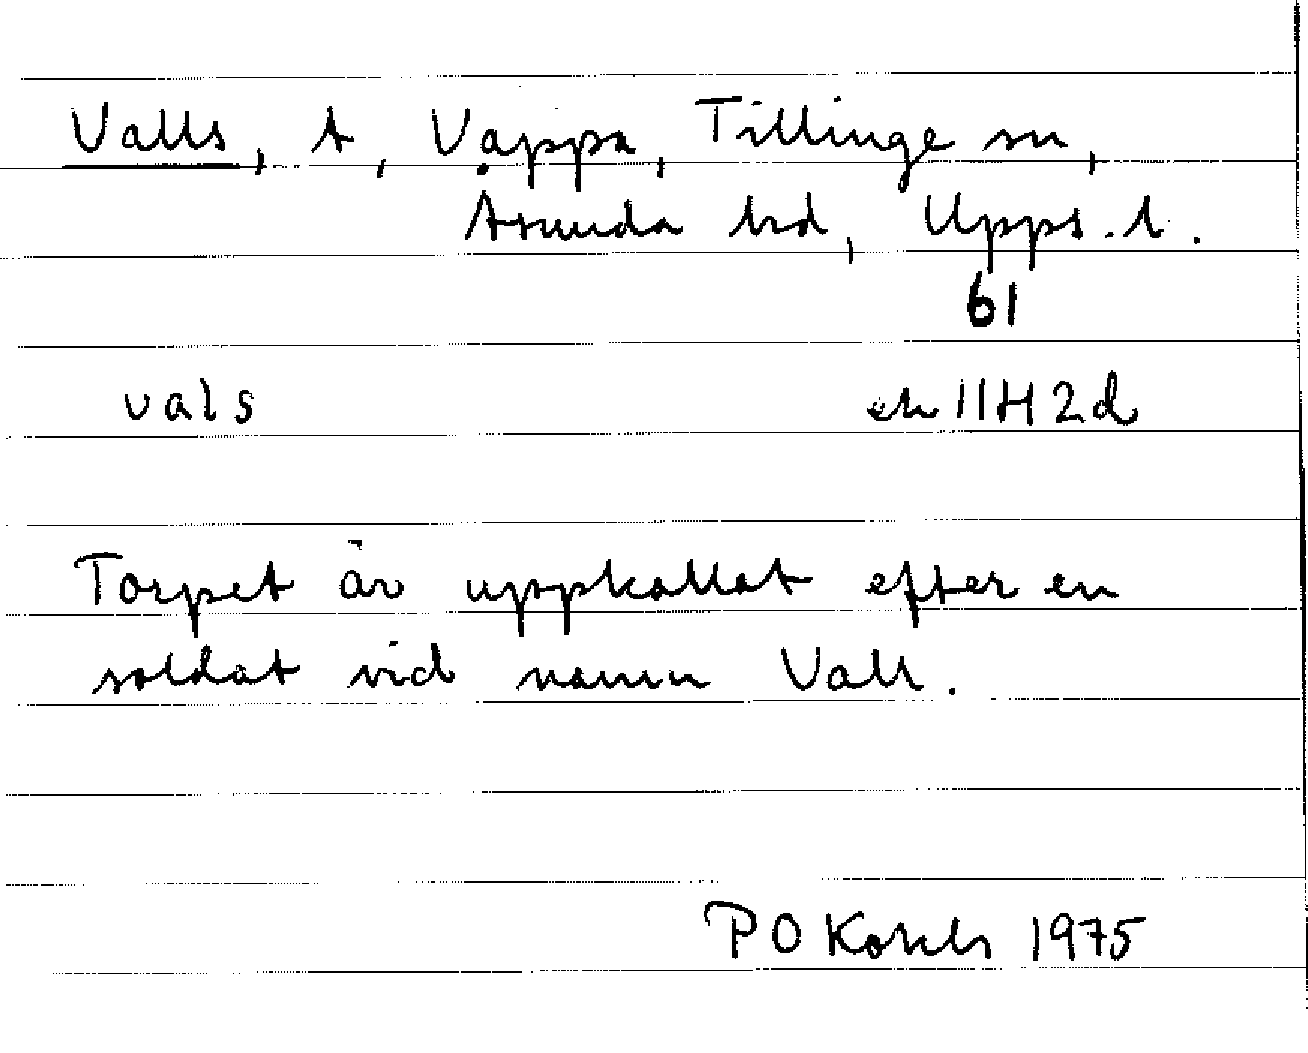 Valls, t, Väppa, Tillinge sn,
Åsunda hd, Upps. l.
61
vals ek 11H2d
Torpet är uppkallat efter en
soldat vid namn Vall.
P O 1975